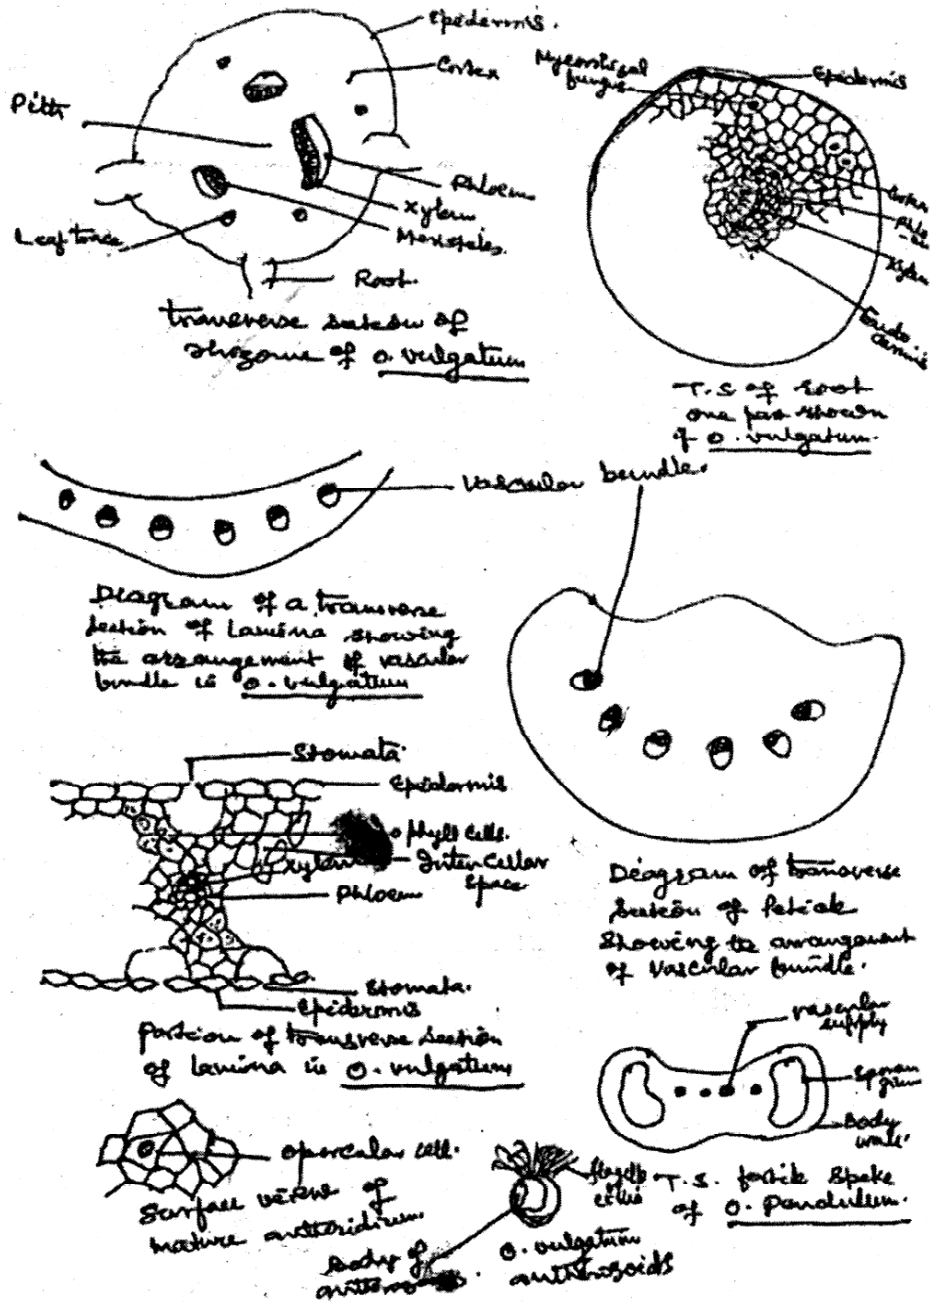 Epidermis.
Cortex
Pith
Phloem
Xylem
Meristeles.
Leaf trace
Root.
Transverse section of
rhizome of O. vulgatum
Mycorrhizal
fungus
Epidermis
Cortex
Phlo
-em
Xylem
Endo.
dermis
T.S of root
one part shown
of O. vulgatum.
Vascular bundle.
Diagram of a transverse
section of lamina showing
the arrangement of vascular
bundle in O. vulgatum
Stomata.
Epidermis
ophyll cells.
Xylem
Inter cellar
space
Phloem
Stomata.
Epidermis
portion of transverse section
of lamina in O. vulgatum
Diagram of transverse
section of Petiole
Showing the arrangement
of vascular bundle.
vascular
supply
Sporan
gium
Body
wall.
T.S. fertile spike
of O. Pandulum.
opercular cell.
Surface view of
mature antheridium.
body of
O. vulgatum
antherozoids